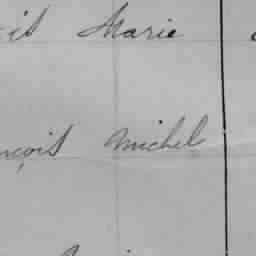 Marie
nçois Michel